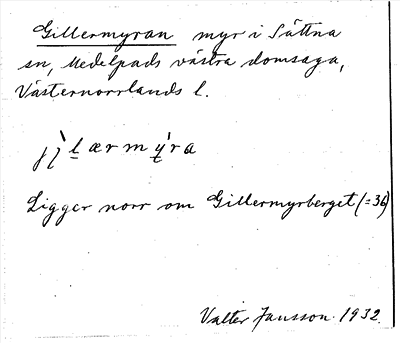 Gillermyran myr i Sättna
sn, Medelpads västra domsaga,
Västernorrlands l.
Ligger norr om Gillermyrberget (=36)
Valter Jansson. 1932.